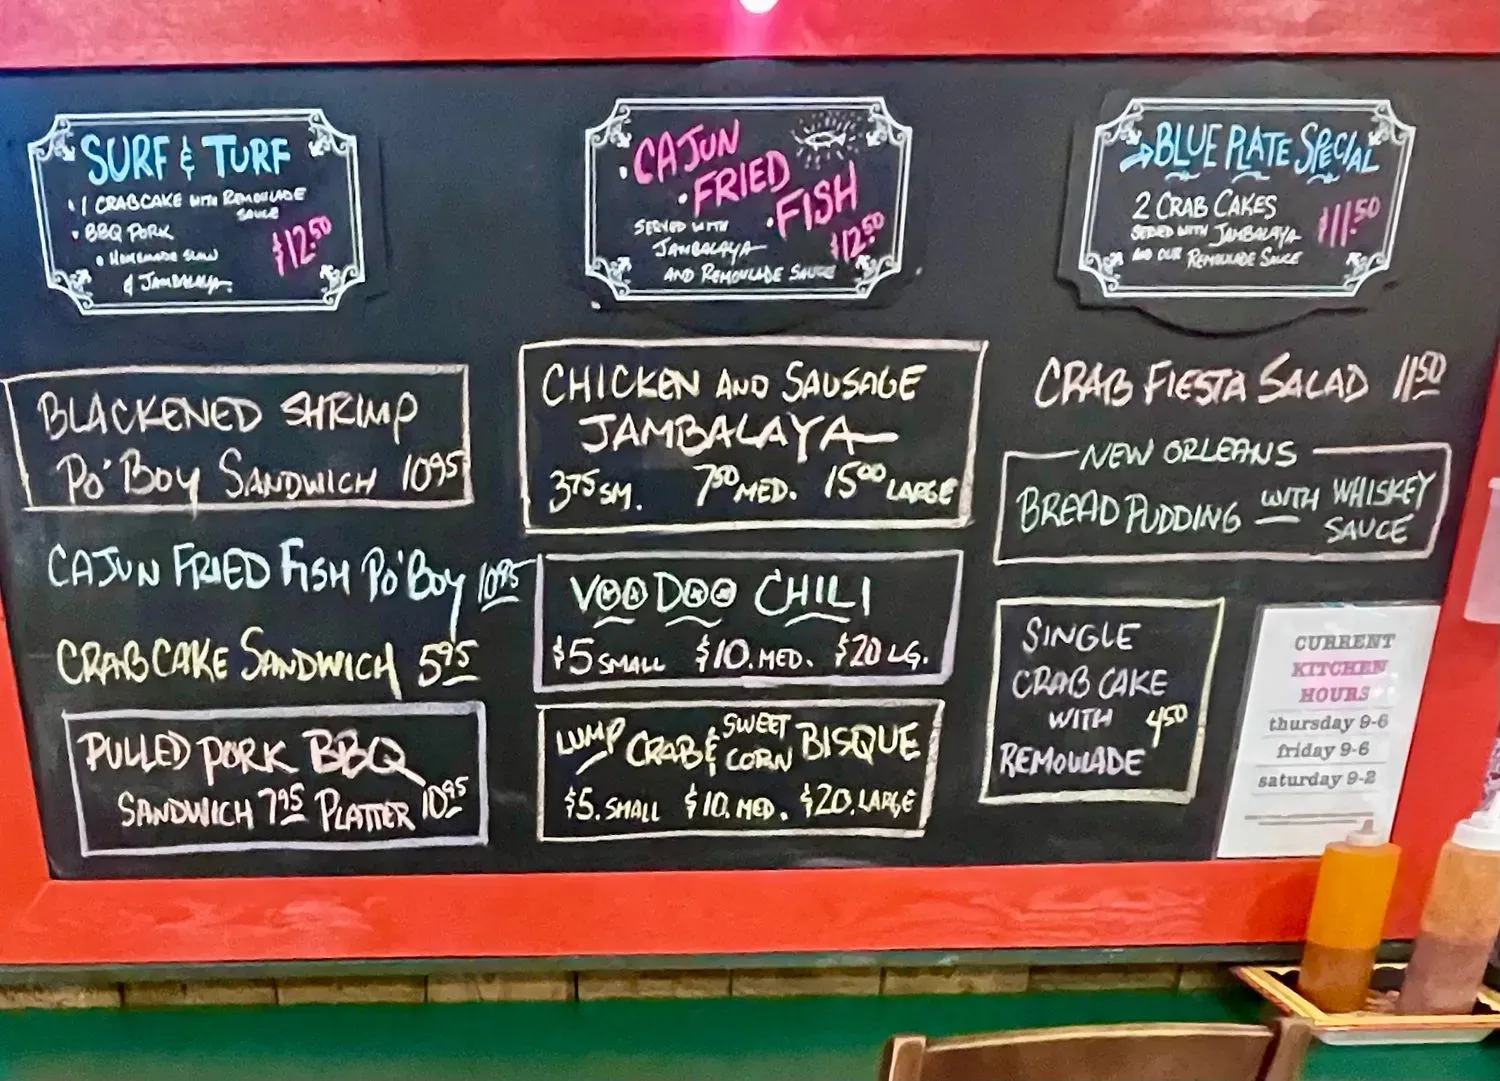 SURF & TURF
1 CRABCAKE WITH REMOULADE
SAUCE
BBQ PORK
HOMEMADE SLAW
& JAMBALAYA
$12.50
CAJUN
FRIED
FISH
SERVED WITH
JAMBALAYA
AND REMOULADE SAUCE
$12.50
BLUE PLATE SPECIAL
2 CRAB CAKES
SERVED WITH JAMBALAYA
AND OUR REMOULADE SAUCE
$11.50
BLACKENED SHRIMP
PO'BOY SANDWICH 10.95
CAJUN FRIED FISH PO'BOY 10.95
CRABCAKE SANDWICH 5.95
PULLED PORK BBQ
SANDWICH 7.95 PLATTER 10.95
CHICKEN AND SAUSAGE
JAMBALAYA
3.75 SM. 7.50 MED. 15.00 LARGE
VOODOO CHILI
$5 SMALL $10. MED. $20 LG.
LUMP CRAB & SWEET CORN BISQUE
$5. SMALL $10. MED. $20. LARGE
CRAB FIESTA SALAD 11.50
NEW ORLEANS
BREAD PUDDING WITH WHISKEY
SAUCE
SINGLE
CRAB CAKE
WITH 4.50
REMOULADE
CURRENT
KITCHEN
HOURS
thursday 9-6
friday 9-6
saturday 9-2